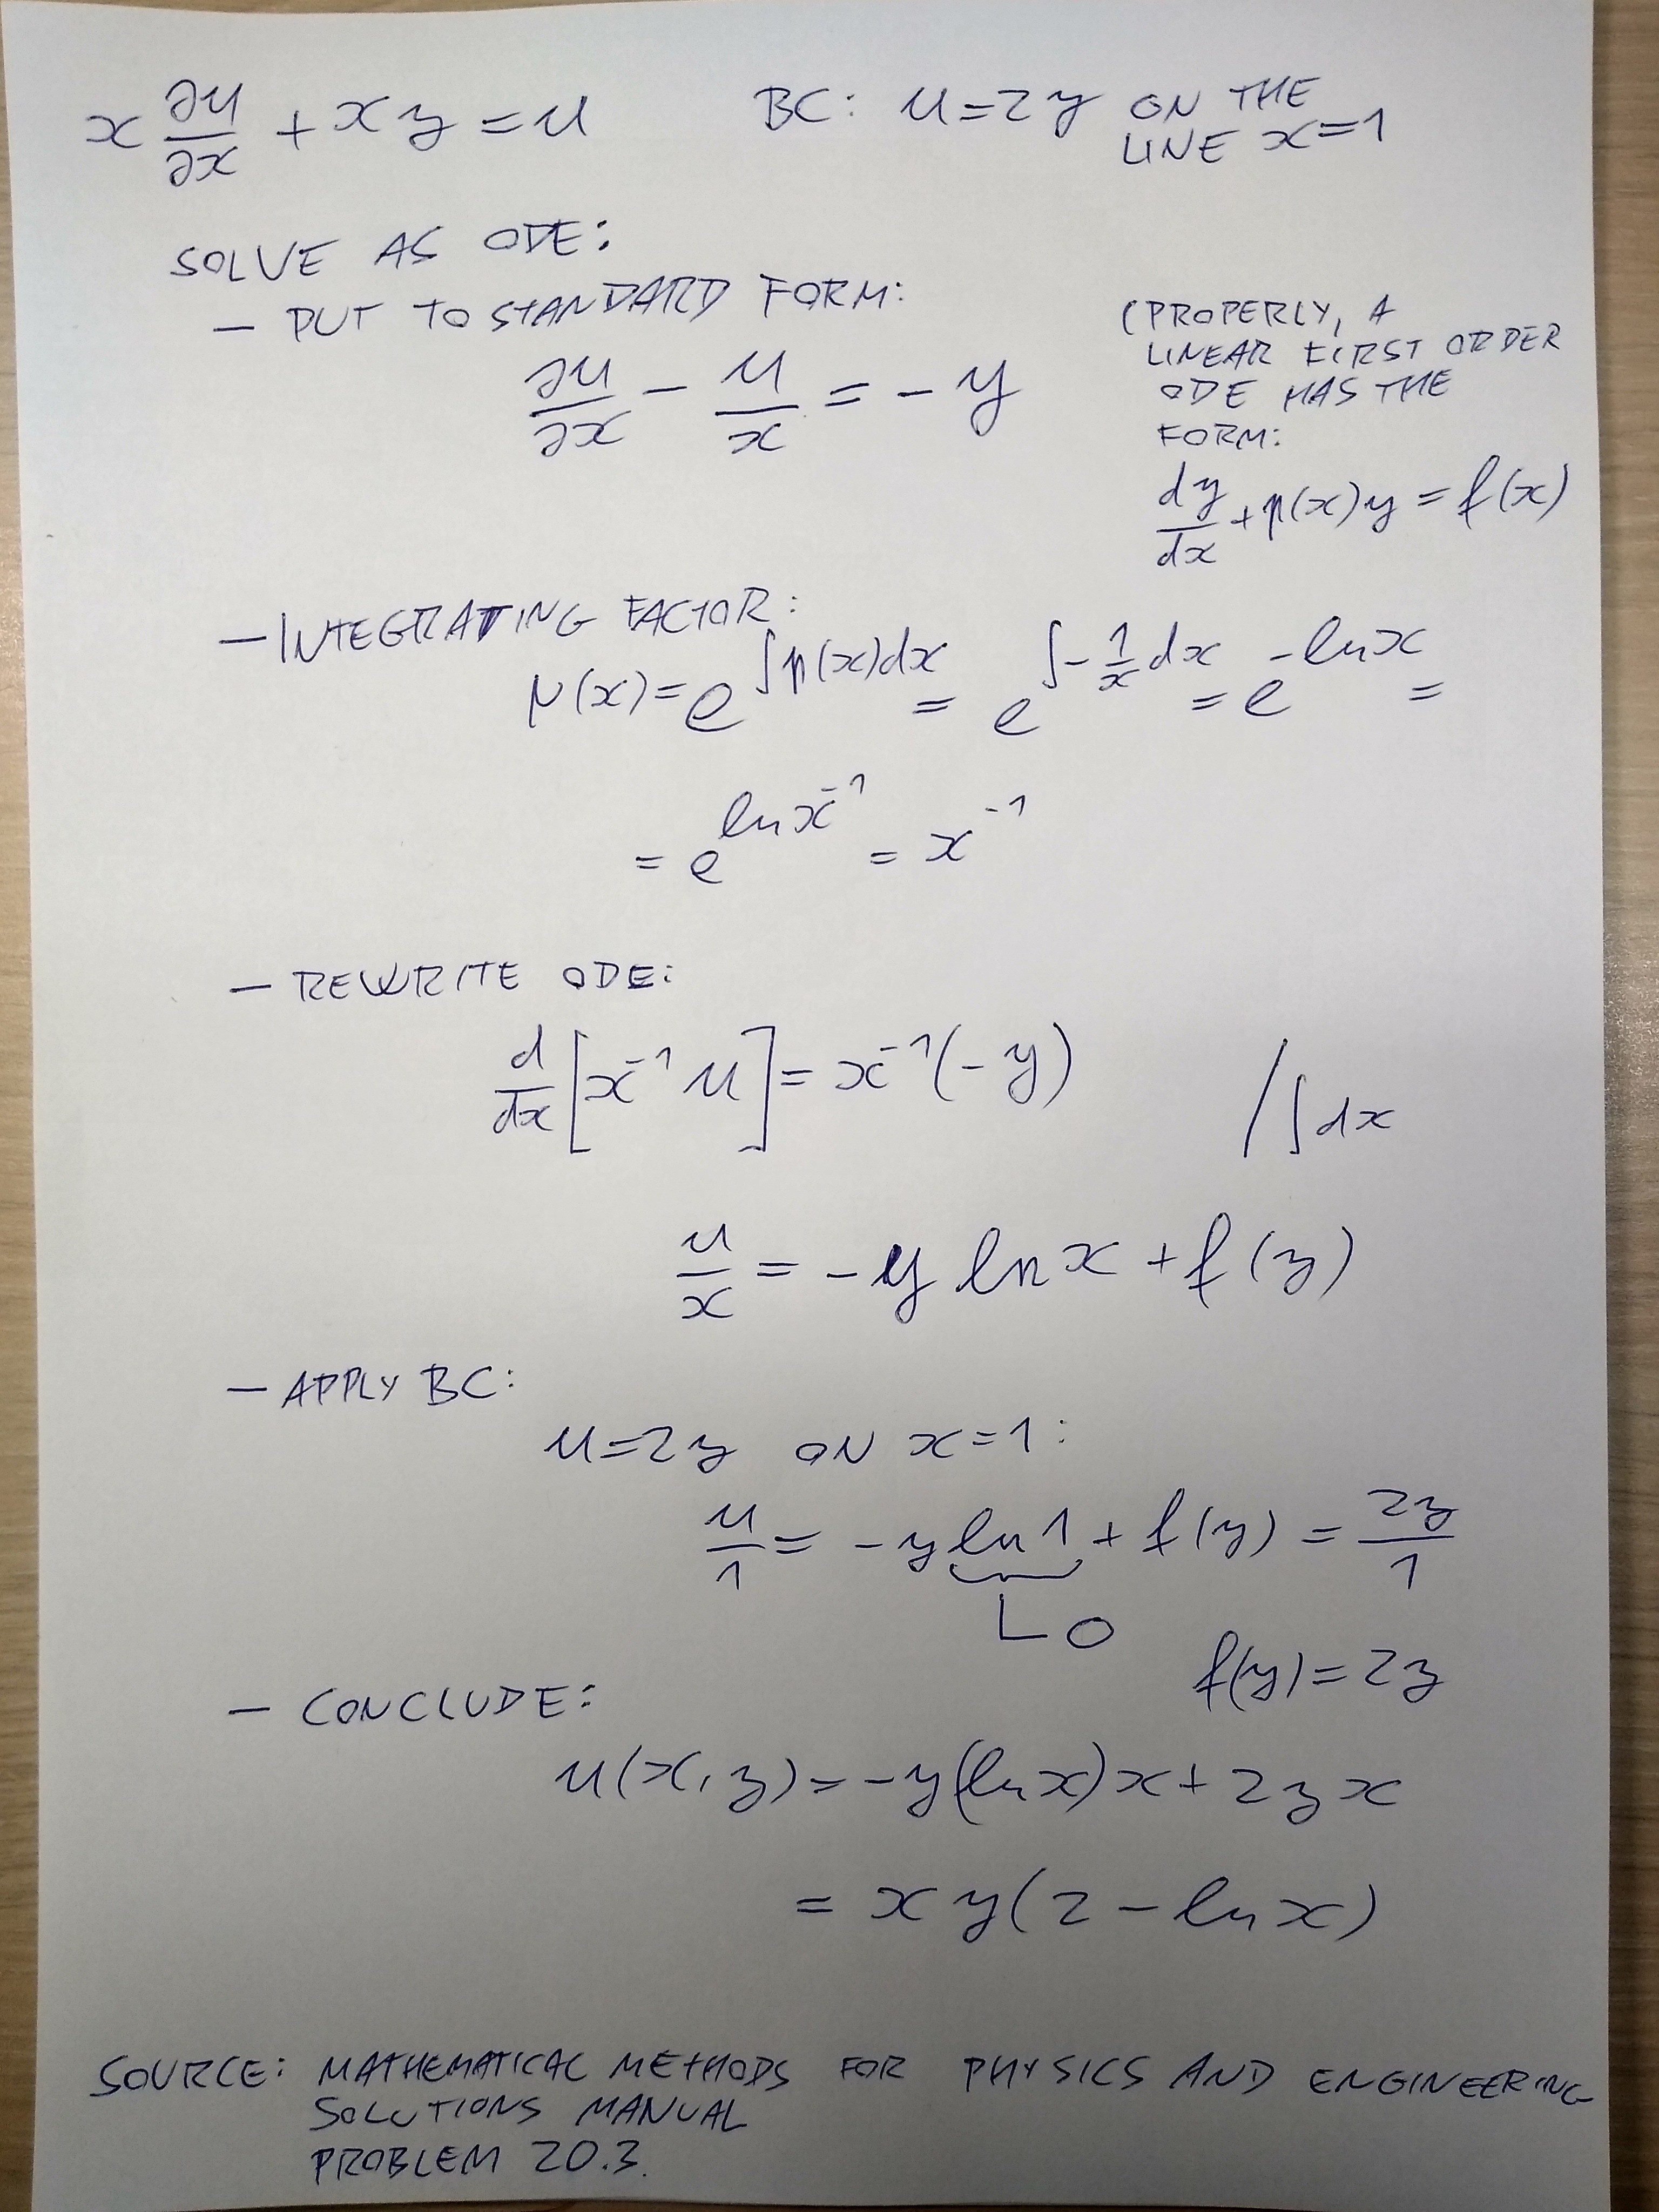 x ∂u/∂x + xy = u BC: u=2y ON THE LINE x=1
SOLVE AS ODE:
— PUT TO STANDARD FORM:
∂u/∂x − u/x = −y
(PROPERLY, A
LINEAR FIRST ORDER
ODE HAS THE
FORM:
dy/dx + p(x)y = f(x)
— INTEGRATING FACTOR:
μ(x) = e^{∫p(x)dx} = e^{∫−1/x dx} = e^{−ln x} =
= e^{ln x^{−1}} = x^{−1}
— REWRITE ODE:
d/dx [x^{−1} u] = x^{−1}(−y) /∫dx
u/x = −y ln x + f(y)
— APPLY BC:
u=2y ON x=1:
u/1 = −y ln 1 + f(y) = 2y/1
0
f(y) = 2y
— CONCLUDE:
u(x,y) = −y(ln x)x + 2yx
= xy(2 − ln x)
SOURCE: MATHEMATICAL METHODS FOR PHYSICS AND ENGINEERING
SOLUTIONS MANUAL
PROBLEM 20.3.